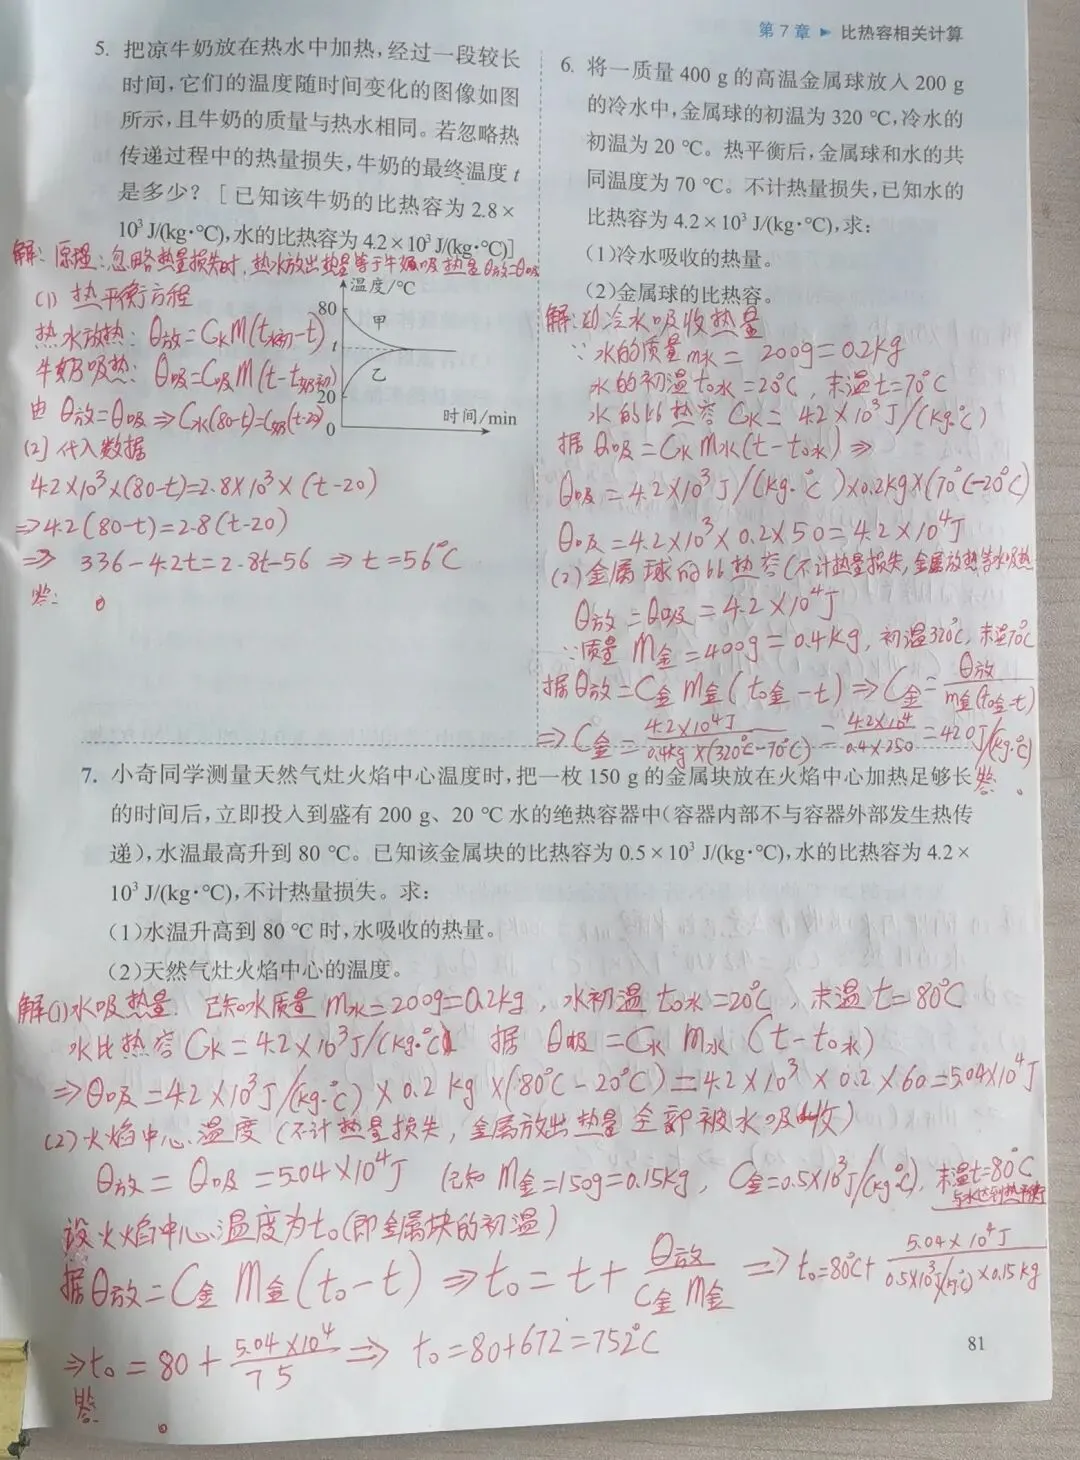 第 7 章 ▶ 比热容相关计算
5. 把凉牛奶放在热水中加热,经过一段较长
时间,它们的温度随时间变化的图像如图
所示,且牛奶的质量与热水相同。若忽略热
传递过程中的热量损失,牛奶的最终温度 t
是多少？[已知该牛奶的比热容为 2.8×
10³ J/(kg·℃),水的比热容为 4.2×10³ J/(kg·℃)]
解: 原理:忽略热量损失时,热水放出热量等于牛奶吸热量 Q放=Q吸
(1) 热平衡方程
热水放热: Q放=C水M(t水初-t)
牛奶吸热: Q吸=C吸M(t-t奶初)
由 Q放=Q吸⇒C水(80-t)=C奶(t-20)
(2) 代入数据
4.2×10³×(80-t)=2.8×10³×(t-20)
⇒4.2(80-t)=2.8(t-20)
⇒ 336-4.2t=2.8t-56 ⇒ t=56℃
答: 。
温度/℃
80
甲
t
乙
20
0
时间/min
6. 将一质量 400 g 的高温金属球放入 200 g
的冷水中,金属球的初温为 320 ℃,冷水的
初温为 20 ℃。热平衡后,金属球和水的共
同温度为 70 ℃。不计热量损失,已知水的
比热容为 4.2×10³ J/(kg·℃),求:
(1)冷水吸收的热量。
(2)金属球的比热容。
解:(1)冷水吸收热量
∵水的质量m水= 200g=0.2kg
水的初温t0水=20℃, 末温t=70℃
水的比热容 C水= 4.2×10³J/(kg·℃)
据 Q吸=C水m水(t-t0水)⇒
Q吸=4.2×10³J/(kg·℃)×0.2kg×(70℃-20℃)
Q吸=4.2×10³×0.2×50=4.2×10⁴J
(2)金属球的比热容(不计热量损失,金属放热等水吸热
Q放=Q吸=4.2×10⁴J
∵质量 m金=400g=0.4kg, 初温320℃,末温70℃
据Q放=C金m金(t0金-t)⇒C金=Q放/m金(t0金-t)
⇒C金=4.2×10⁴J/0.4kg×(320℃-70℃)=4.2×10⁴/0.4×250=420J/(kg·℃)
答 。
7. 小奇同学测量天然气灶火焰中心温度时,把一枚 150 g 的金属块放在火焰中心加热足够长
的时间后,立即投入到盛有 200 g、20 ℃ 水的绝热容器中(容器内部不与容器外部发生热传
递),水温最高升到 80 ℃。已知该金属块的比热容为 0.5×10³ J/(kg·℃),水的比热容为 4.2×
10³ J/(kg·℃),不计热量损失。求:
(1)水温升高到 80 ℃ 时,水吸收的热量。
(2)天然气灶火焰中心的温度。
解(1)水吸热量. 已知水质量 m水=200g=0.2kg, 水初温 t0水=20℃, 末温 t=80℃
水比热容 C水=4.2×10³J/(kg·℃) 据 Q吸=C水m水(t-t0水)
⇒Q吸=4.2×10³J/(kg·℃)×0.2kg×(80℃-20℃)=4.2×10³×0.2×60=5.04×10⁴J
(2)火焰中心温度(不计热量损失,金属放出热量全部被水吸收)
Q放= Q吸=5.04×10⁴J (已知 m金=150g=0.15kg, C金=0.5×10³J/(kg·℃), 末温t=80℃
与水达到热平衡
设火焰中心温度为t0(即金属块的初温)
据Q放=C金m金(t0-t)⇒t0=t+Q放/C金m金⇒t0=80℃+5.04×10⁴J/0.5×10³J/(kg·℃)×0.15kg
⇒t0=80+5.04×10⁴/75⇒ t0=80+672=752℃
答. 。
81